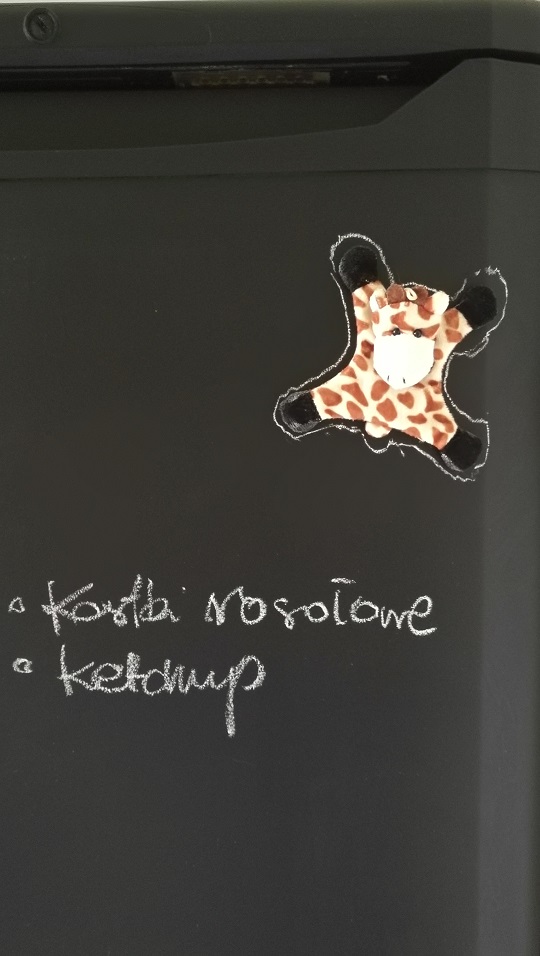 • Kostki rosołowe
• Ketchup